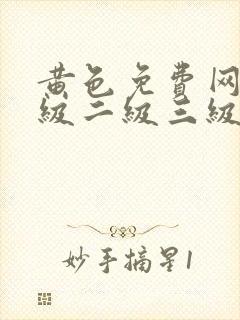 黄色免費网
級二級三級
妙手摘星1